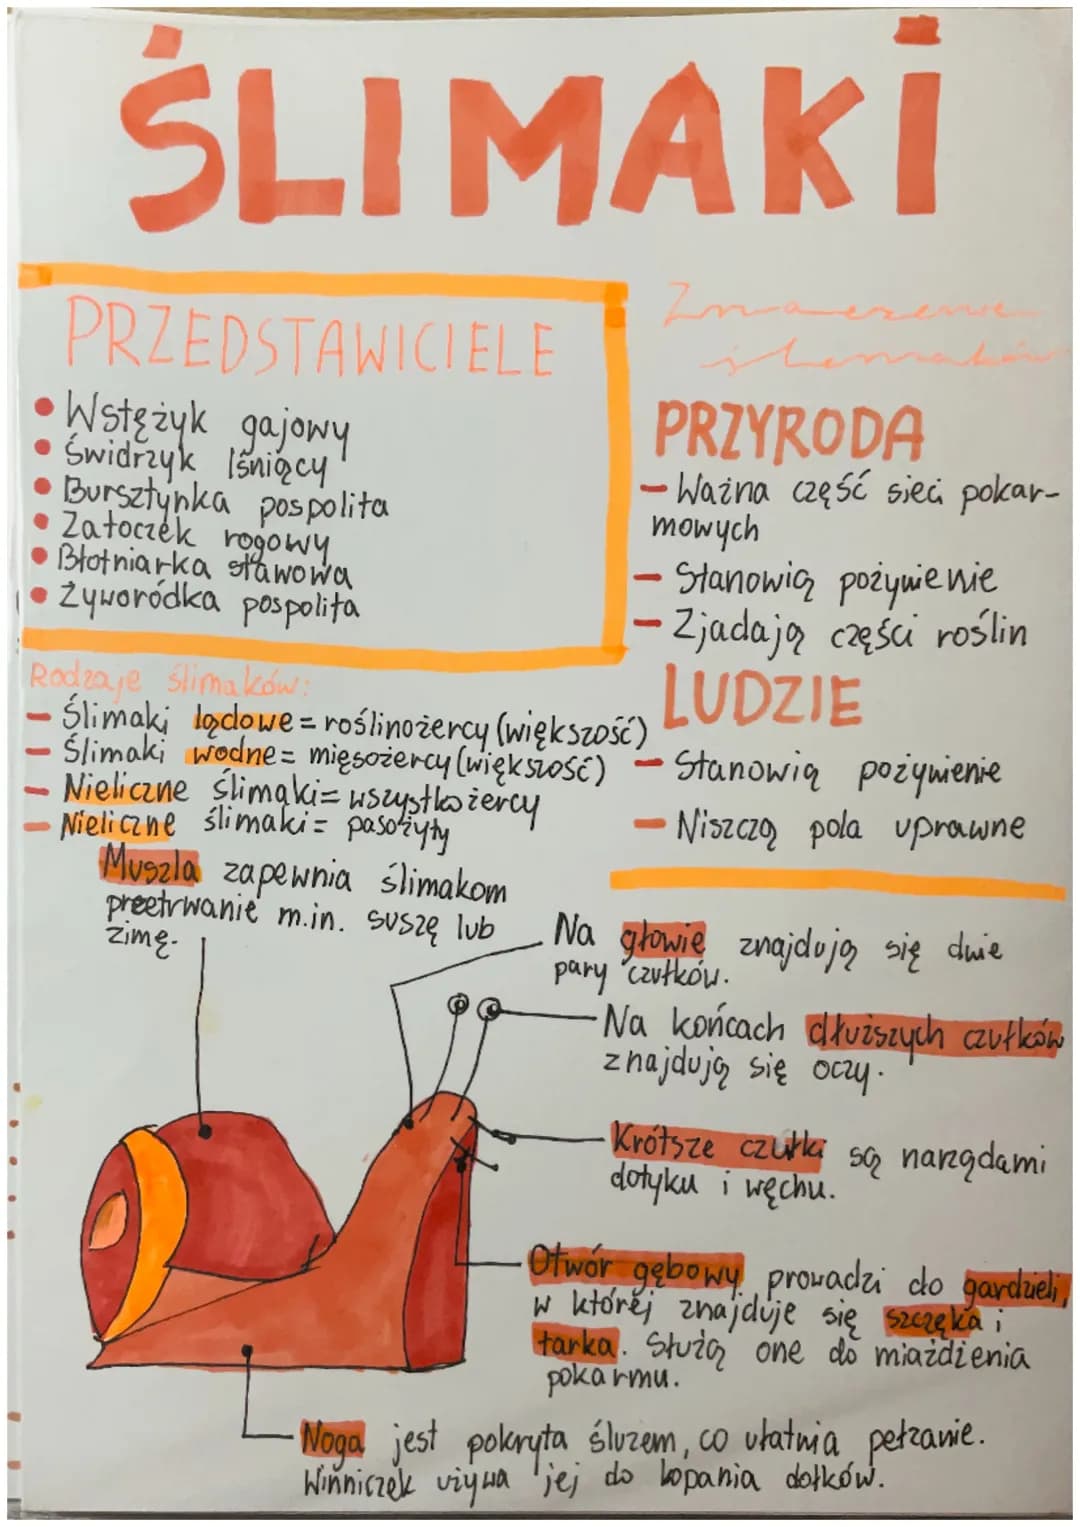 ŚLIMAKI
PRZEDSTAWICIELE
Wstężyk gajowy
Świdrzyk lśniący
Bursztynka pospolita
Zatoczek rogowy
Błotniarka stawowa
Żyworódka pospolita
Rodzaje ślimaków:
- Ślimaki lądowe = roślinożercy (większość)
- Ślimaki wodne = mięsożercy (większość)
- Nieliczne ślimaki = wszystkożercy
- Nieliczne ślimaki = pasożyty
Znaczenie
ślimaków
PRZYRODA
- Ważna część sieci pokar-
mowych
- Stanowią pożywienie
- Zjadają części roślin
LUDZIE
- Stanowią pożywienie
- Niszczą pola uprawne
Muszla zapewnia ślimakom
przetrwanie m.in. suszę lub
zimę.
Na głowie znajdują się dwie
pary czułków.
Na końcach dłuższych czułków
znajdują się oczy.
Krótsze czułki są narządami
dotyku i węchu.
Otwór gębowy prowadzi do gardzieli,
w której znajduje się szczęka i
tarka. Służą one do miażdżenia
pokarmu.
Noga jest pokryta śluzem, co ułatwia pełzanie.
Winniczek używa jej do kopania dołków.